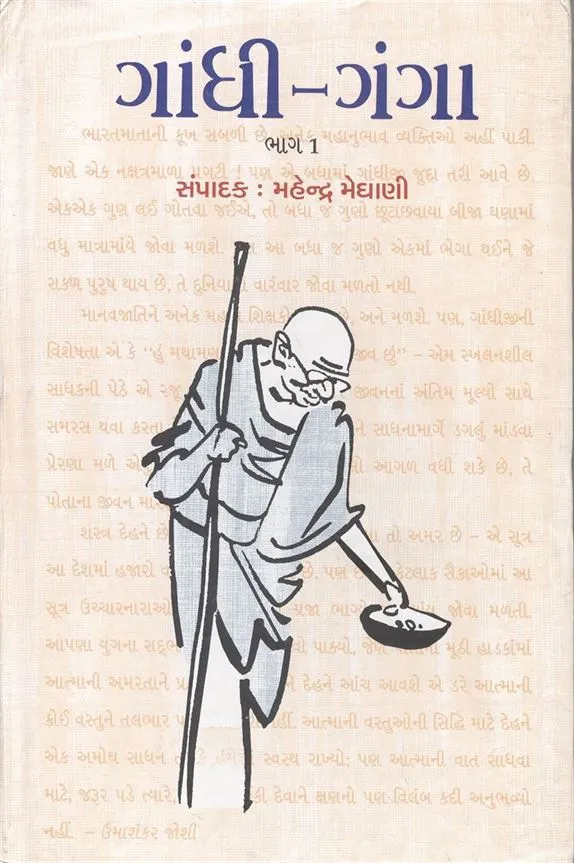 ગાંધી-ગંગા
ભારતમાતાની કૂખ સબળી છે. અનેક મહાનુભાવ વ્યક્તિઓ અહીં પાકી.
ભાગ 1
જાણે એક નક્ષત્રમાળા પ્રગટી ! પણ એ બધામાં ગાંધીજી જુદા તરી આવે છે.
સંપાદક : મહેન્દ્ર મેઘાણી
એકએક ગુણ લઈ ગોતવા જઈએ, તો બધા જ ગુણો છૂટાછવાયા બીજા ઘણામાં
વધુ માત્રામાંયે જોવા મળશે. આ બધા જ ગુણો એકમાં ભેગા થઈને જે
સકળ પુરુષ થાય છે, તે દુનિયા વારંવાર જોવા મળતો નથી.
માનવજાતિને અનેક શિક્ષકો છે, અને મળશે. પણ, ગાંધીજીની
વિશેષતા એ કે “હું મથામણ જીવ છું” – એમ સ્ખલનશીલ
સાધકની પેઠે એ રજૂ જીવનનાં અંતિમ મૂલ્યો સાથે
સમરસ થવા કરતા સાધનામાર્ગે ડગલું માંડવા
પ્રેરણા મળે આગળ વધી શકે છે, તે
પોતાના જીવન
શસ્ત્ર દેહને તો અમર છે – એ સૂત્ર
આ દેશમાં હજારો છે. પણ કેટલાક સૈકાઓમાં આ
સૂત્ર ઉચ્ચારનારાઓ પ્રજા જોવા મળતી.
આપણા યુગના પાક્યો, મૂઠી હાડકાંમાં
આત્માની અમરતાને દેહને આંચ આવશે એ ડરે આત્માની
કોઈ વસ્તુને તલભાર નહીં. આત્માની વસ્તુઓની સિદ્ધિ માટે દેહને
એક અમોઘ સાધન સ્વસ્થ રાખ્યો; પણ આત્માની વાત સાધવા
માટે, જરૂર પડે ત્યારે, દેવાને ક્ષણનો પણ વિલંબ કદી અનુભવ્યો
નહીં. – ઉમાશંકર જોશી